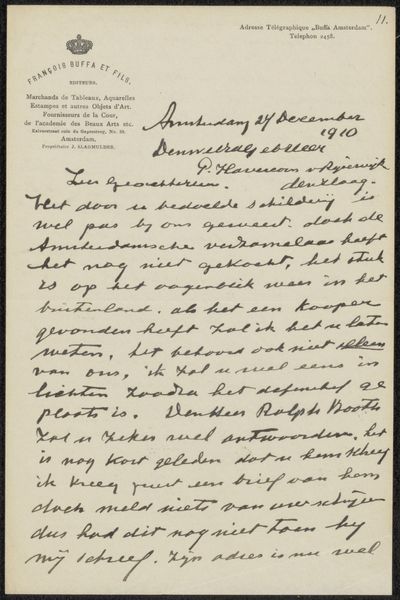 11.
Adresse Télégraphique „Buffa Amsterdam".
Telephon 2458.
FRANÇOIS BUFFA ET FILS,
EDITEURS.
Marchands de Tableaux, Aquarelles
Estampes et autres Objets d'Art.
Fournisseurs de la Cour,
de l'académie des Beaux Arts etc.
Kalverstraat coin du Gapersteeg, No. 39.
Amsterdam.
Propriétaire J. SLAGMULDER.
Amsterdam 27 December
1910
Den weledelgeb Heer
P. Haverkorn v Rijsewijk
den Haag.
Zeer Geachte Heer.
Het door u bedoelde schilderij is
wel pas bij ons geweest. doch de
Amsterdamsche verzamelaar heeft
het nog niet gekocht, het stuk
is op het oogenblik weer in het
buitenland. als het een kooper
gevonden heeft zal ik het u laten
weten, het behoord ook niet alleen
van ons, ik zal u wel eens in
lichten zoodra het definitief ge
plaats is. Den Heer Ralph Booth
zal u zeker wel antwoorden, het
is nog kort geleden dat u hem schreef
ik kreeg juist een brief van hem
doch meld niets van uw schrijven
dus had dit nog niet toen hij
mij schreef. zijn adres is nu wel